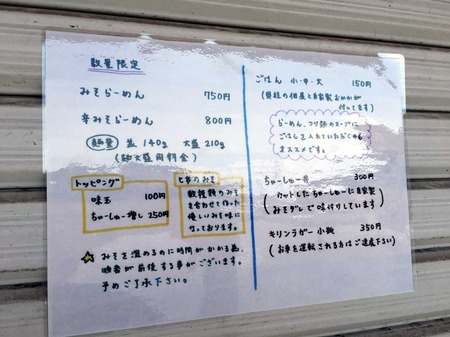 数量限定
みそらーめん 750円
辛みそらーめん 800円
麺量 並 140g 大盛 210g
(麺大盛同料金)
トッピング
味玉 100円
ちゃーしゅー増し 250円
数種類のみそ
を合わせて作った
優しいみそ味に
なっております。
みそを温めるのに時間がかかる為、
順番が前後する事がございます。
予めご了承下さい。
ごはん 小・中・大 150円
(貝柱の佃煮と自家製おかかが
付いてます)
らーめん、つけ麺のスープに
ごはんを入れていただくのも
オススメです。
ちゃーしゅー丼 350円
(カットしたちゃーしゅーに自家製
みそダレで味付けしています)
キリンラガー 小瓶 350円
(お車を運転される方はご遠慮下さい)